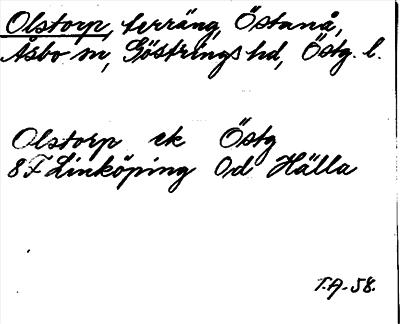 Olstorp, terräng, Östanå,
Åsbo sn, Göstrings hd, Östg. l.
Olstorp ek Östg
8F Linköping 0d Hälla
T.A-58.